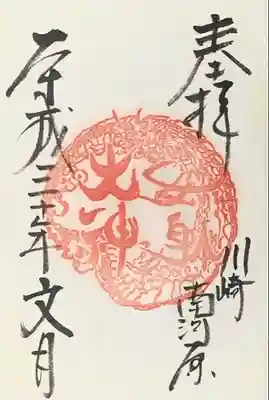 奉拝
川崎
南河原
大神
平成三十年文月